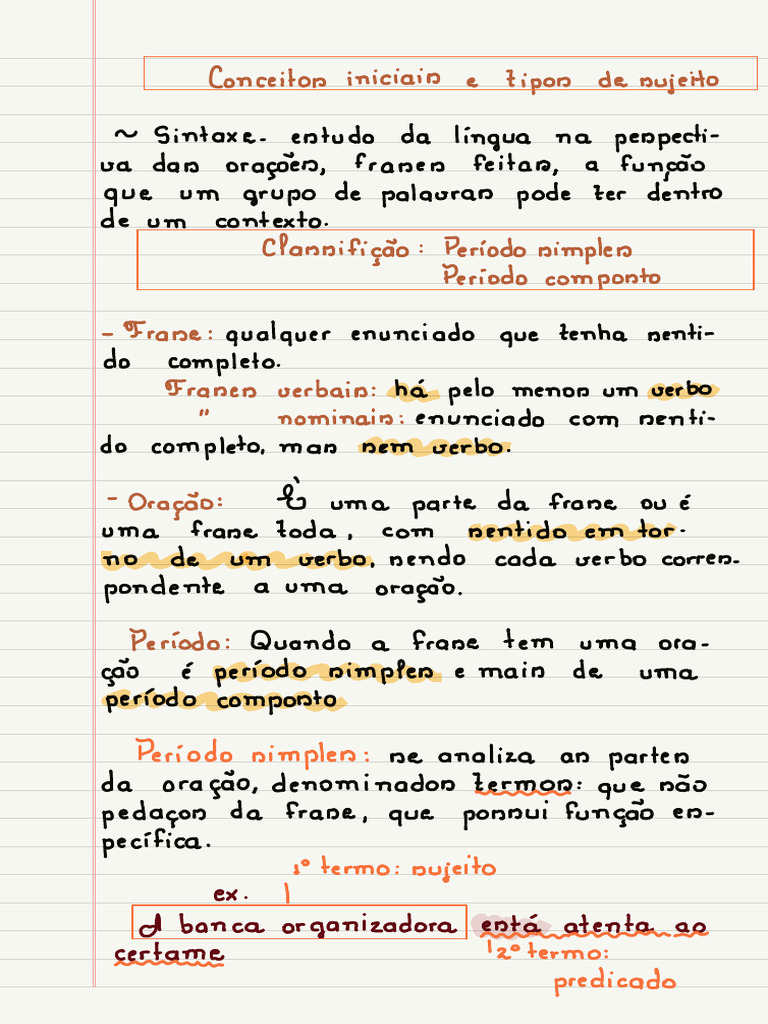 Conceitos iniciais e tipos de sujeito
~ Sintaxe- estudo da língua na perspecti-
va das orações, frases feitas, a função
que um grupo de palavras pode ter dentro
de um contexto.
Classifição: Período simples
Período composto
- Frase: qualquer enunciado que tenha senti-
do completo.
Frases verbais: há pelo menos um verbo
" nominais: enunciado com senti-
do completo, mas sem verbo.
- Oração: É uma parte da frase ou é
uma frase toda, com sentido em tor-
no de um verbo, sendo cada verbo corres-
pondente a uma oração.
Período: Quando a frase tem uma ora-
ção é período simples e mais de uma
período composto
Período simples: se analiza as partes
da oração, denominados termos: que são
pedaços da frase, que possui função es-
pecífica.
1º termo: sujeito
ex.
A banca organizadora está atenta ao
certame
2º termo:
predicado